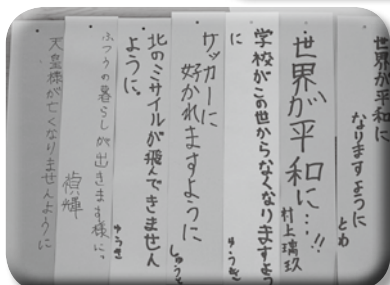 世界が平和に
なりますように
とわ
世界が平和に…!!
村上璃玖
学校がこの世からなくなりますよう
に
ゆうき
サッカーに
好かれますように
しゅうと
北のミサイルが飛んできません
ように。
ゆうき
ふつうの暮らしが出きます様に。
禎輝
天皇様が亡くなりませんように